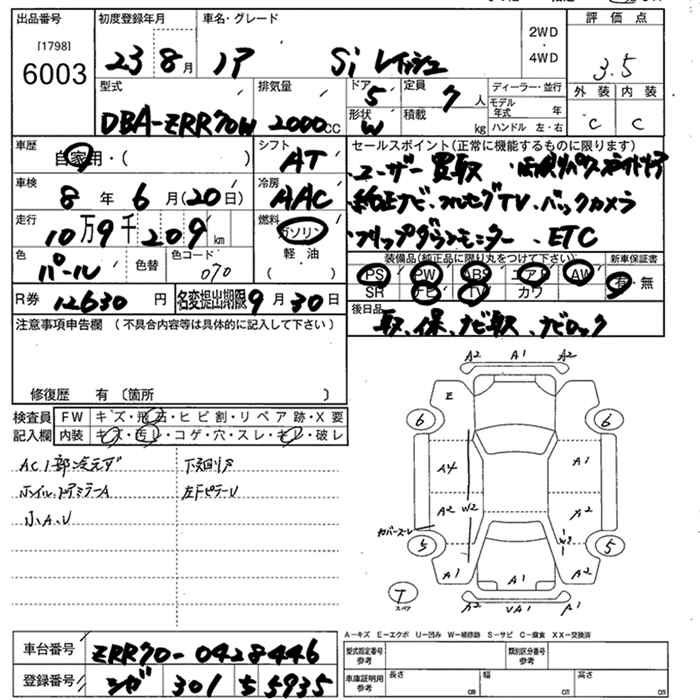 出品番号 初度登録年月 車名・グレード 2WD ・ 4WD 評価点
[1798]
6003 23 8月 ノア Si 3.5
外装 内装
C C
型式 排気量 ドア 定員 ディーラー・並行
DBA-ZRR70W 2000cc 5 7人
形状 積載 モデル年式 年
W kg ハンドル 左・右
車歴 シフト セールスポイント(正常に機能するものに限ります)
自家用・( ) AT ・ユーザー買取
車検 冷房 ・純正ナビ・フルセグTV、バックカメラ
8年6月(20日) AAC ・フリップダウンモニター、ETC
走行 燃料
10万9千209km ガソリン 軽・油 ( )
色 色替 色コード
パール 070
装備品(純正品に限り丸をつけて下さい) 新車保証書
PS PW ABS エアB AW 有・無
SR ナビ TV カワ
R券 12630円 名変提出期限 9月30日
後日品 取、保、ナビ取、ナビロック
注意事項申告欄 (不具合内容等は具体的に記入して下さい)
修復歴 有 〔箇所 〕
検査員記入欄 FW キズ・飛石・ヒビ割・リペア跡・X要
内装 キズ・汚レ・コゲ・穴・スレ・キレ・破レ
小A、U
A2 A1 A2
E
6 6
A4 A1
A2 W2 A2
カバースーレ W2
5 5
A1 A1 A1
T スペア
A2 VA1 A1
A-キズ E-エクボ U-凹み W-補修跡 S-サビ C-腐食 XX-交換済
車台番号 ZRR70-0428446
登録番号 シガ 301 5 5935
型式指定番号 参考 類別区分番号 参考
車庫証明用 参考 長さ cm 幅 cm 高さ cm